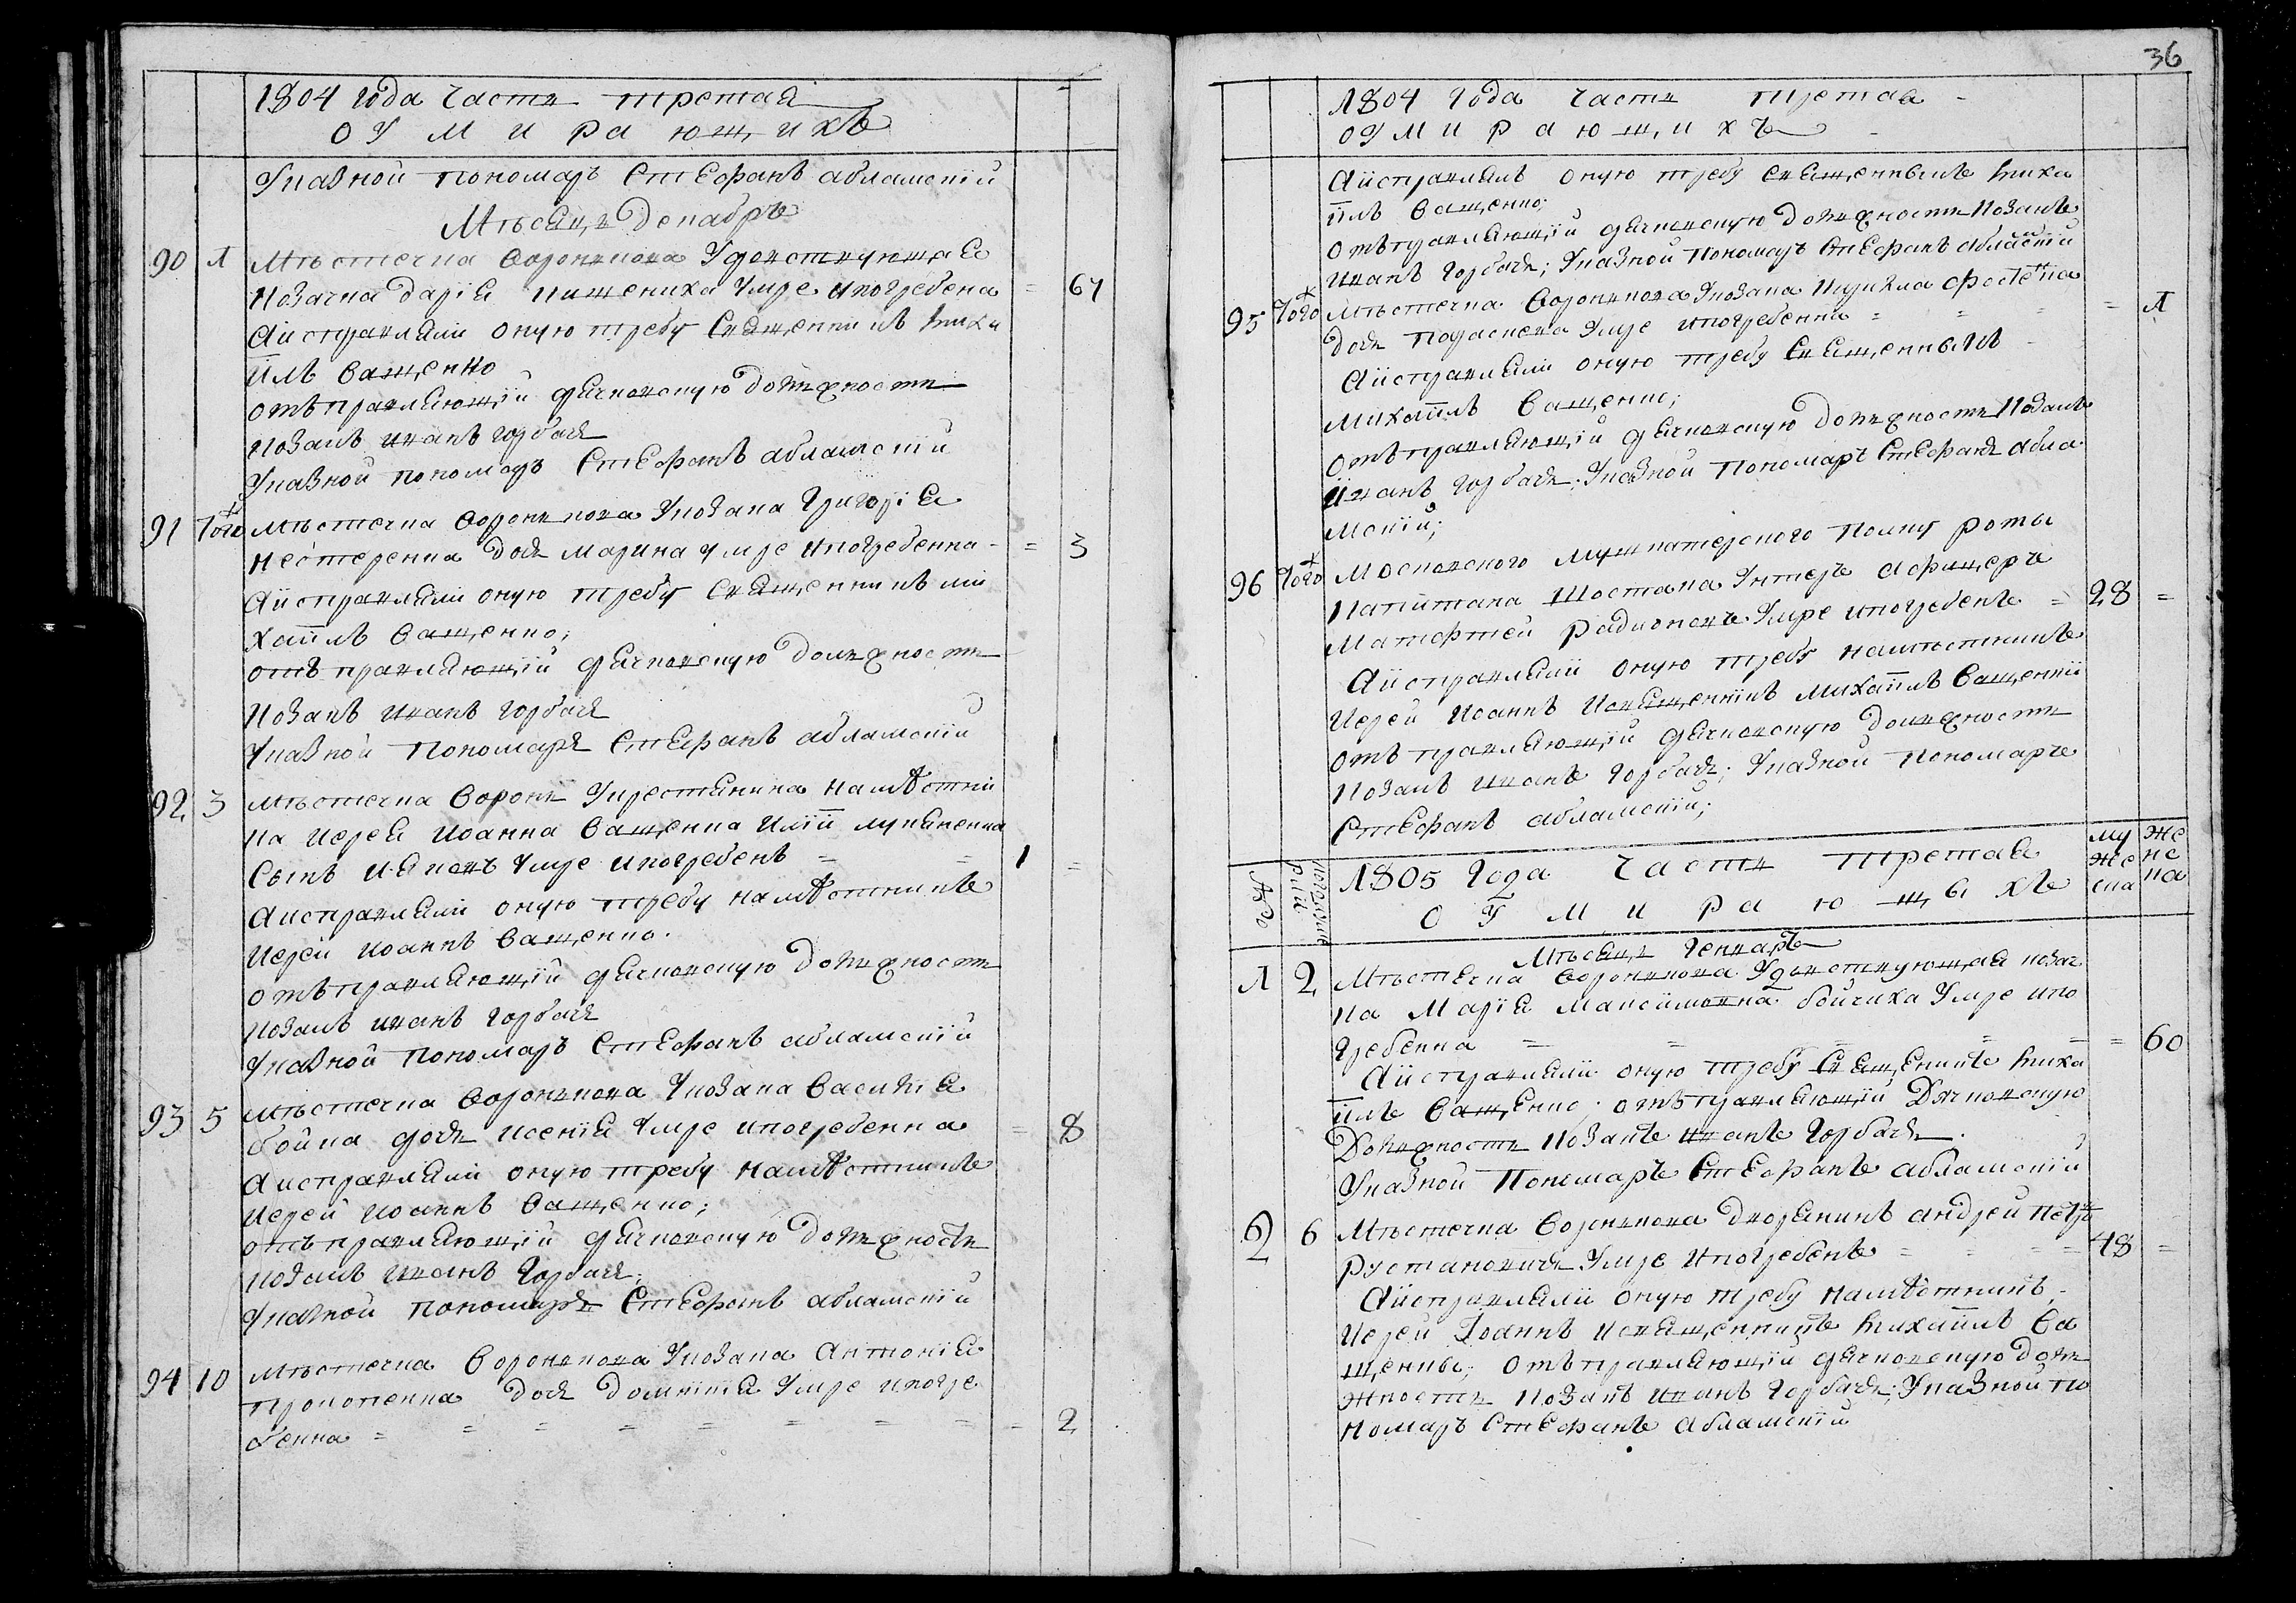 1804 года часть третая
О У м и р а ю щ и хъ
Указной пономаръ Стефанъ абламский
Мъсецъ Декабръ
90 1 Мъстечка Воронкова Удовствующая
козачка дарія кищениха умре ипогребена = 64
Аисправляли оную требу Священникъ миха
илъ Ващенко
отъправляющій дячковскую должность
козакъ иванъ горбачъ
Указной пономаръ Стефанъ абламский
91 того мъстечка Воронкова Укозака Григорія
нестеренка дочь марина умре ипогребенна - = 3
Аисправляли оную требу Священникъ ми
хаилъ Ващенко;
отъправляющій дячковскую должность
козакъ иванъ горбачъ
Указной пономарь Стефанъ абламский
92 3 мъстечка Воронк Укрестянина намѣстни
ка иерея иоанна Ващенка иліи лукяненка
Сынъ иаковъ умре ипогребенъ = = 1 =
Аисправляли оную требу намѣстникъ
иерей иоаннъ Ващенко.
отъправляющій дячковскую должность
козакъ иванъ горбачъ
Указной пономаръ Стефанъ абламский
93 5 мъстечка Воронкова Укозака Василія
бойка дочь ксенія умре ипогребенна = 8
Аисправляли оную требу намѣстникъ
иерей иоаннъ Ващенко;
отъправляющій дячковскую должность
козакъ иванъ Горбачь;
Указной пономарь Стефанъ абламский
94 10 мъстечка Воронкова Укозака Антонія
прокопенка дочь домникія умре ипогре
бенна = = = = = = = = 2
36
1804 года часть третая -
О У м и р а ю щ и х ъ -
Аисправлялъ оную требу священныкъ миха
илъ Ващенко;
отъправляющій дячковскую должность козакъ
иванъ горбачь; Указной пономаръ Стефанъ абламский
95 того мъстечка Воронкова Укозака кирила фостенка
дочь параскева умре ипогребенна = = = = 1
Аисправляли оную требу Священныкъ -
михаилъ Ващенко;
отъправляющій дячковскую должность козакъ
иванъ горбачь; Указной пономаръ Стефанъ абла
мский;
96 того московского мушкатерского полку роты
капитана Шостака Унтеръ афицеръ
Матфтей радионовъ умре ипогребенъ = 28 =
Аисправляли оную требу намъстникъ
иерей иоаннъ исвященникъ михаилъ Ващенки
отъправляющій дячковскую должность
козакъ иванъ горбачь; Указной пономаръ
Стефанъ абламский;
1805 Года часть третая му же
жес нс
ска ка
О У м и р а ю щ ы хъ
Мъсецъ Генваръ
1 2 мъстечка Воронкова Удовствующая козач
ка Марія максимовна бойчиха умре ипо
гребенна = = = = = = 60
Аисправляли оную требу Священикъ миха
илъ Ващенко; отъправляющій Дячковскую
Должность козакъ иванъ горбачь.
Указной пономаръ Стефанъ абламский
2 6 Мъстечка Воронкова дворянинъ андрей петро
рустановичь умре ипогребенъ = = = = 48 =
Аисправляли оную требу намѣстникъ -
иерей Іоаннъ исвященникъ михаилъ Ва
щенкы; отъправляющій дячковскую долж
жность козакъ иванъ горбачь; Указной по
номаръ Стефанъ абламский